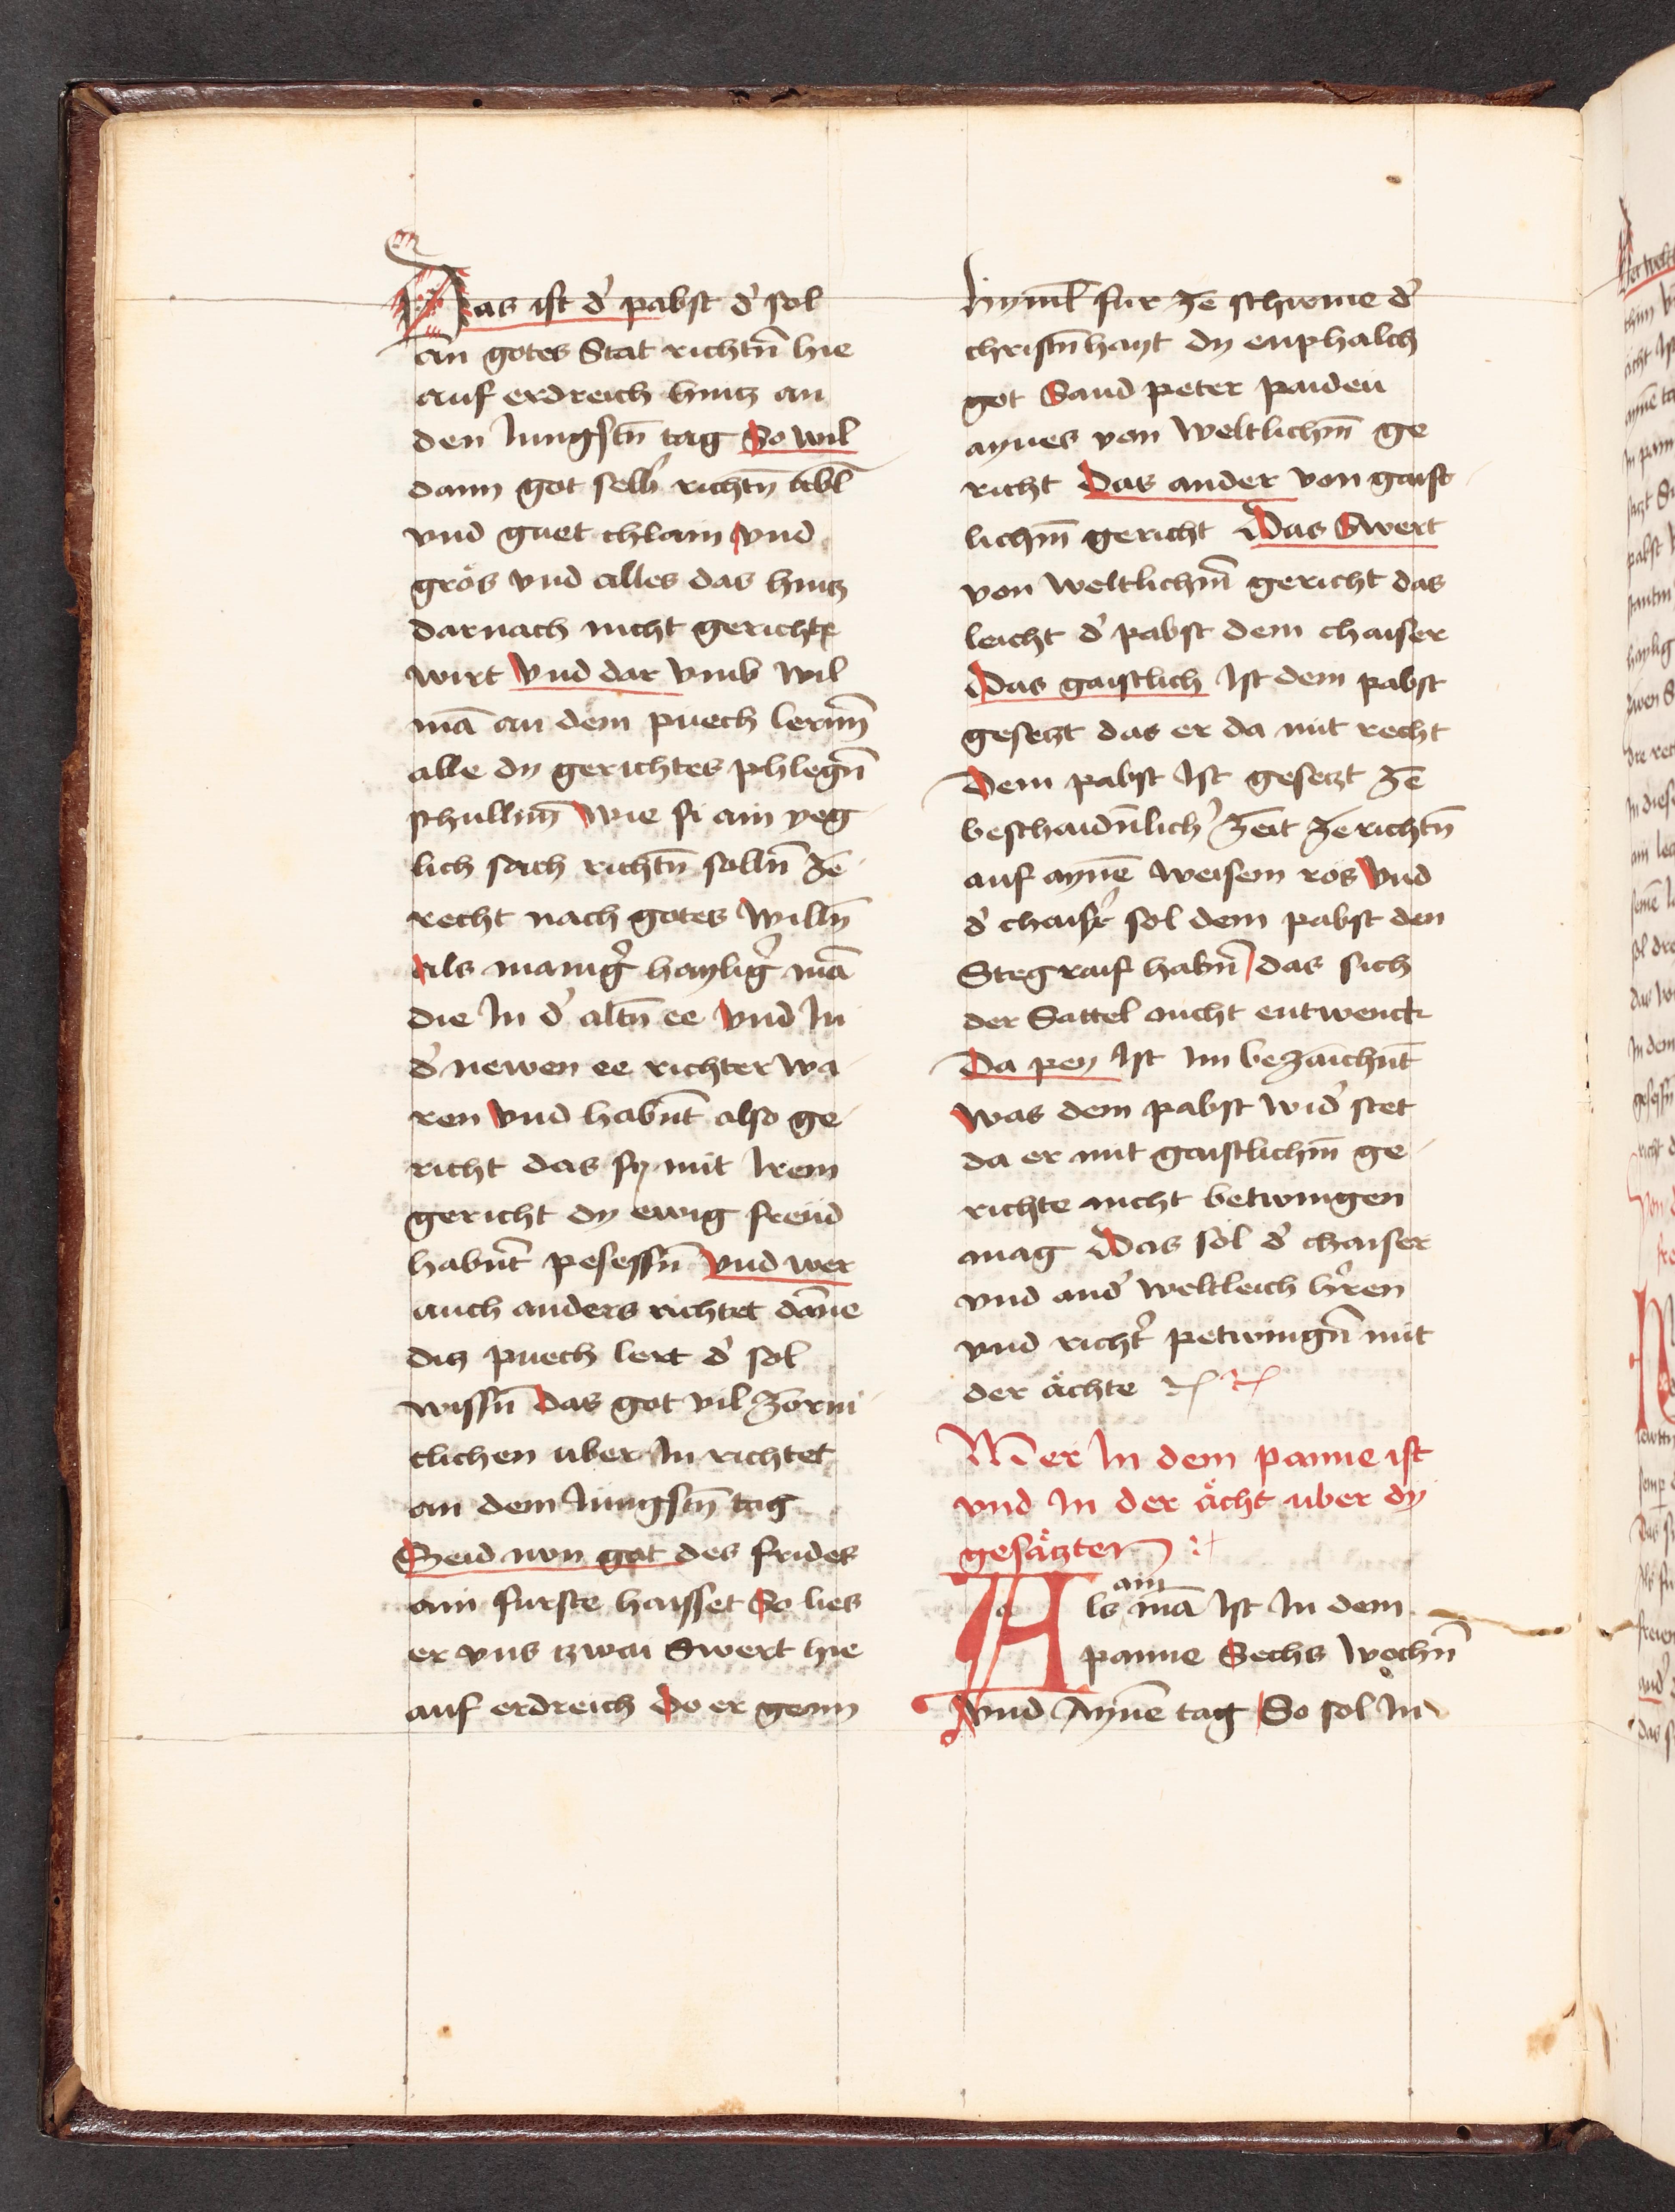 Das ist d̕ pabst d̕ sol
An gotes Stat richtn̄ hie
auf erdreich hintz an
den Jungstn̄ tag So wil
dann got selb̕ richtn̄ vbl̄
vnd guet chlain vnd
grös vnd alles das hintz
darnach nicht gericht
wirt Vnd dar vmb wil
mā an dem puech lernn̄
alle dy gerichtes phlegn̄
schullnn̄ Wie si ain yeg
lich sach richtn̄ solln̄ Ze
recht nach gotes Willn̄
Als manig̕ haylig̕ mā
die In d̕ altn̄ ee Vnd In
d̕ newen ee richter wa
ren Vnd habn̄t also ge
richt das sy mit Irem
gericht dy ewig freüd
habn̄t pesessn̄ Vnd wer
auch anders richtet dān̄e
dis puech lert d̕ sol
wissn̄ Das got vil Zorni
clichen uber In richtet
an dem Jungstn̄ tag
Seid nvn got des frides
ain furste haisset So lies
er vns zwai Swert hie
auf erdreich Do er genn
hyml̄ fur Ze schirme d̕
christn̄hayt dy enphalch
got Sand peter paideu
aynes von Weltlichm̄ ge
richt Das ander von gaist
lichm̄ gericht Das Swert
von Weltlichm̄ gericht das
leicht d̕ pabst dem chaiser
Das gaistlich Ist dem pabst
gesetzt das er da mit recht
Dem pabst Ist gesetzt Ze
beschaidn̄lich̕ Zeit Ze richtn̄
auf aynē Weisem ros Vnd
d̕ chais̕ sol dem pabst den
Stegraif habn̄ das sich
der Sattel nicht entwenck
Da pey Ist Im beZaichnt̄
Was dem pabst wid̕ stet
da er mit gaistlichm̄ ge
richte nicht betwingen
mag Das sol d̕ chaiser
vnd and̕ weltleich h̕ren
vnd richt̕ petwingn̄ mit
der ächte
Wer In dem panne ist
vnd In der ächt uber dy
gesätzten
Als ain mā Ist In dem
panne Sechs Wochn̄
Vnd Aynē tag So sol In